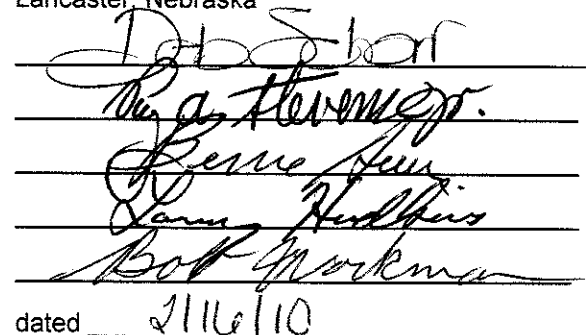 Lancaster, Nebraska
Deb Schorr
Ray A. Stevens Jr.
Bernie Heier
Larry Hudkins
Bob Workman
dated 2/16/10